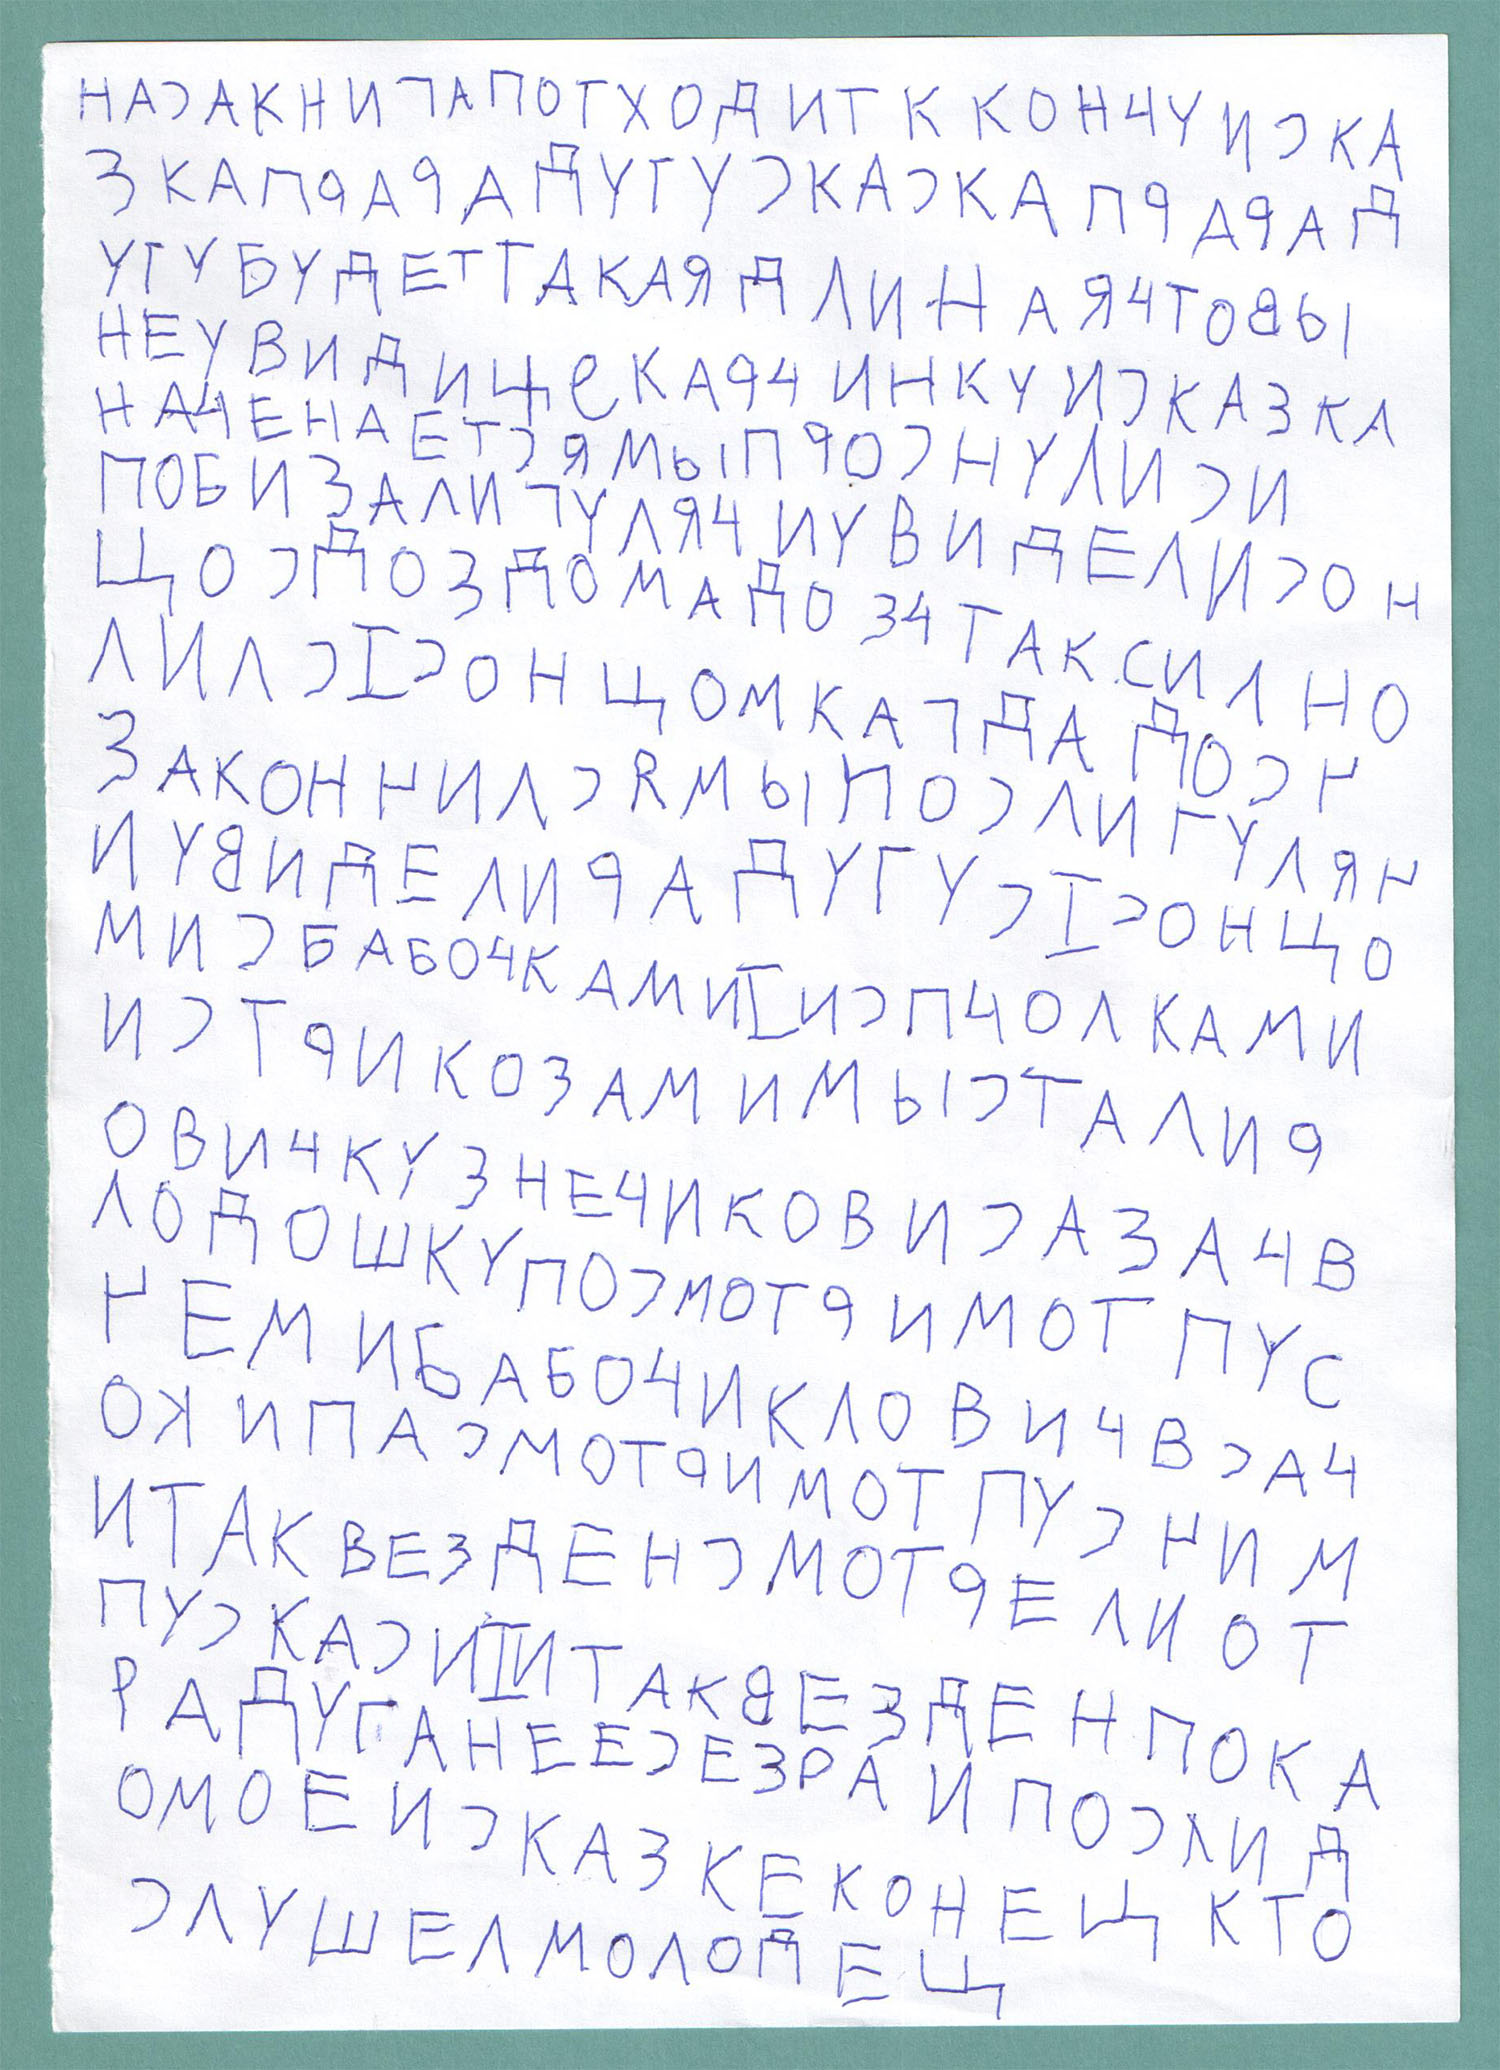 НАСАКНИГАПОТХОДИТ К КОНЧУИСКА
ЗКАПРАРАДУГУСКАСКАПРАРАД
УГУБУДЕТТАКАЯДЛИНАЯЧТОВЫ
НЕУВИДИЩЕКАРЧИНКУИСКАЗКА
НАЧЕНАЕТСЯМЫПРОСНУЛИСИ
ПОБИЗАЛИГУЛЯЧИУВИДЕЛИСОН
ЩОСДОЗДОМАДОЗЧТАКСИЛНО
ЛИЛСІСОНЩОМКАГДАДОСЧ
ЗАКОННИЛСЯМЫПОСЛИГУЛЯЧ
ИУВИДЕЛИРАДУГУСІСОНЩО
МИСБАБОЧКАМИІИСПЧОЛКАМИ
ИСТРИКОЗАМИМЫСТАЛИЯ
ОВИЧКУЗНЕЧИКОВИСАЗАЧВ
ЛОДОШКУПОСМОТРИМОТПУС
ЧЕМИБАБОЧИКЛОВИЧВСАЧ
ОКИПАСМОТРИМОТПУСЧИМ
ИТАКВЕЗДЕНСМОТРЕЛИОТ
ПУСКАСИІИТАКВЕЗДЕНПОКА
РАДУГАНЕЕСЕЗРАИПОСЛИД
ОМОЕИСКАЗКЕКОНЕЩКТО
СЛУШЕЛМОЛОДЕЩ